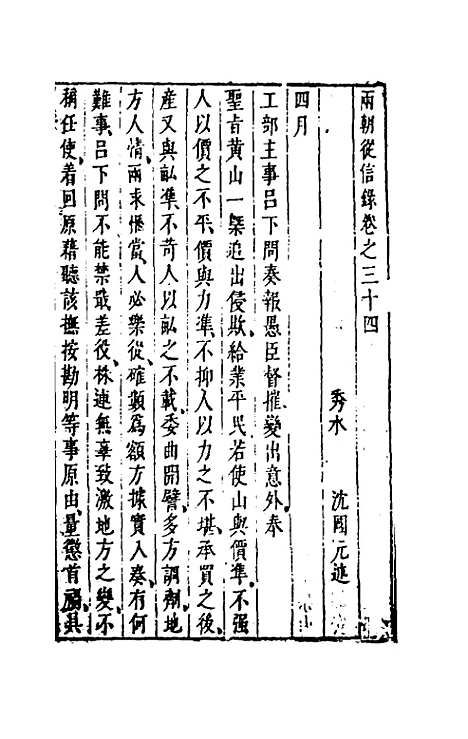 兩朝從信錄卷之三十四
秀水 沈國元述
四月
工部主事呂下問奏報愚臣督摧變出意外奉
聖旨黃山一槩追出侵欺給業平民若使山與價準不强
人以價之不平價與力準不抑人以力之不堪承買之後
產又與畝準不苛人以畝之不載委曲開譬多方調劑地
方人情兩求愜當人必樂從確數爲額方據實入奏有何
難事呂下問不能禁戢差役株連無辜致激地方之變不
稱任使着回原藉聽該撫按勘明等事原由量懲首禍具